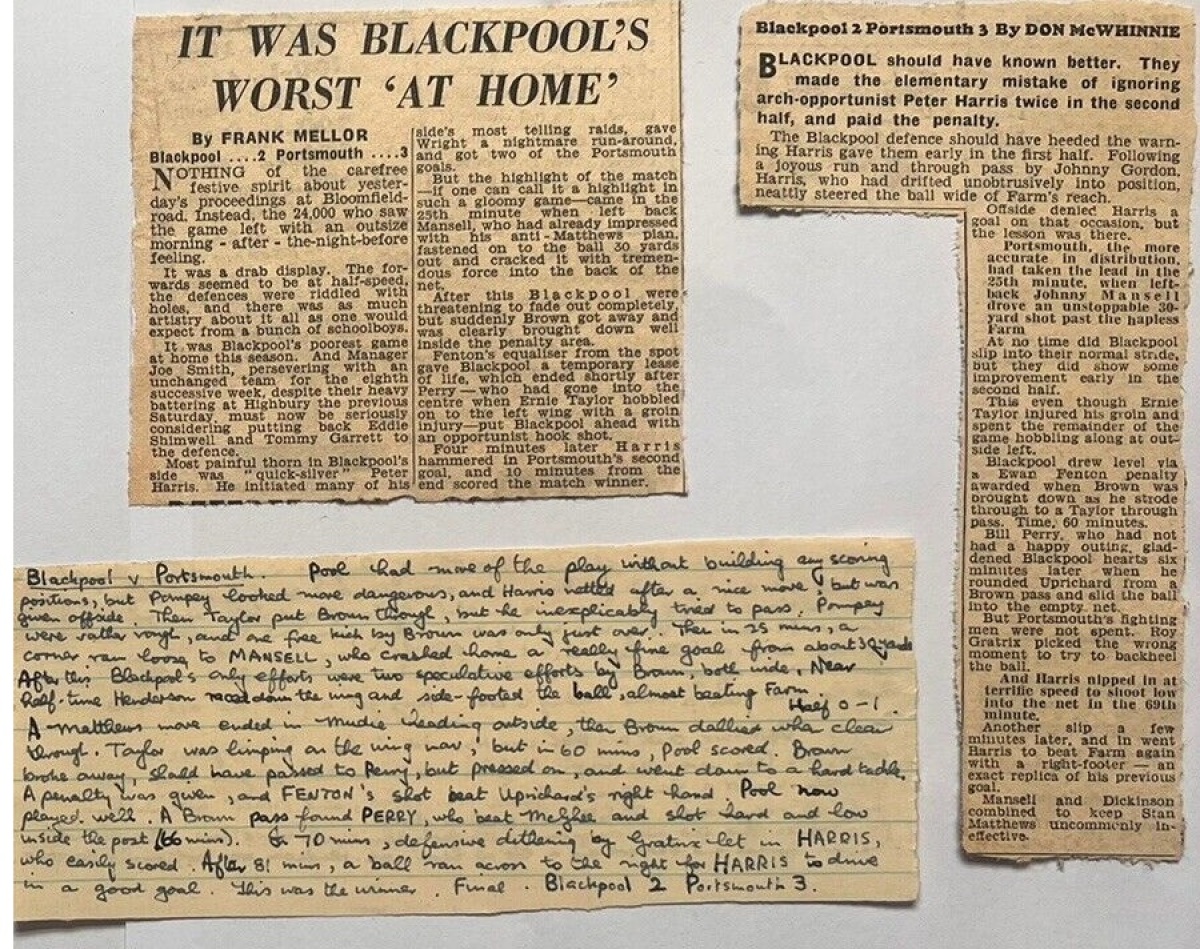 IT WAS BLACKPOOL'S
WORST 'AT HOME'
By FRANK MELLOR
Blackpool ....2 Portsmouth ....3
NOTHING of the carefree
festive spirit about yester-
day's proceedings at Bloomfield-
road. Instead, the 24,000 who saw
the game left with an outsize
morning - after - the-night-before
feeling.
It was a drab display. The for-
wards seemed to be at half-speed,
the defences were riddled with
holes, and there was as much
artistry about it all as one would
expect from a bunch of schoolboys.
It was Blackpool's poorest game
at home this season. And Manager
Joe Smith, persevering with an
unchanged team for the eighth
successive week, despite their heavy
battering at Highbury the previous
Saturday, must now be seriously
considering putting back Eddie
Shimwell and Tommy Garrett to
the defence.
Most painful thorn in Blackpool's
side was "quick-silver" Peter
Harris. He initiated many of his
side's most telling raids, gave
Wright a nightmare run-around,
and got two of the Portsmouth
goals.
But the highlight of the match
—if one can call it a highlight in
such a gloomy game—came in the
25th minute when left back
Mansell, who had already impressed
with his anti-Matthews plan,
fastened on to the ball 30 yards
out and cracked it with tremen-
dous force into the back of the
net.
After this Blackpool were
threatening to fade out completely,
but suddenly Brown got away and
was clearly brought down well
inside the penalty area.
Fenton's equaliser from the spot
gave Blackpool a temporary lease
of life, which ended shortly after
Perry—who had gone into the
centre when Ernie Taylor hobbled
on to the left wing with a groin
injury—put Blackpool ahead with
an opportunist hook shot.
Four minutes later Harris
hammered in Portsmouth's second
goal, and 10 minutes from the
end scored the match winner.
Blackpool 2 Portsmouth 3 By DON McWHINNIE
BLACKPOOL should have known better. They
made the elementary mistake of ignoring
arch-opportunist Peter Harris twice in the second
half, and paid the penalty.
The Blackpool defence should have heeded the warn-
ing Harris gave them early in the first half. Following
a joyous run and through pass by Johnny Gordon,
Harris, who had drifted unobtrusively into position,
neattly steered the ball wide of Farm's reach.
Offside denied Harris a
goal on that occasion, but
the lesson was there.
Portsmouth, the more
accurate in distribution,
had taken the lead in the
25th minute, when left-
back Johnny Mansell
drove an unstoppable 30-
yard shot past the hapless
Farm
At no time did Blackpool
slip into their normal stride,
but they did show some
improvement early in the
second half.
This even though Ernie
Taylor injured his groin and
spent the remainder of the
game hobbling along at out-
side left.
Blackpool drew level via
a Ewan Fenton penalty
awarded when Brown was
brought down as he strode
through to a Taylor through
pass. Time, 60 minutes.
Bill Perry, who had not
had a happy outing, glad-
dened Blackpool hearts six
minutes later when he
rounded Uprichard from a
Brown pass and slid the ball
into the empty net.
But Portsmouth's fighting
men were not spent. Roy
Gratrix picked the wrong
moment to try to backheel
the ball.
And Harris nipped in at
terrific speed to shoot low
into the net in the 69th
minute.
Another slip a few
minutes later, and in went
Harris to beat Farm again
with a right-footer — an
exact replica of his previous
goal.
Mansell and Dickinson
combined to keep Stan
Matthews uncommonly in-
effective.
Blackpool v Portsmouth. Pool had more of the play without building any scoring
positions, but Pompey looked more dangerous, and Harris netted after a nice move, but was
given offside. Then Taylor put Brown through, but he inexplicably tried to pass. Pompey
were rather rough, and one free kick by Brown was only just over. Then in 25 mins, a
corner ran loose to MANSELL, who crashed home a really fine goal from about 30 yards
After this Blackpool's only efforts were two speculative efforts by Brown, both wide. Near
half-time Henderson raced down the wing and side-footed the ball, almost beating Farm.
Half 0-1.
A Matthews move ended in Mudie heading outside, then Brown dallied when clear
through. Taylor was limping on the wing now, but in 60 mins, Pool scored. Brown
broke away, should have passed to Perry, but pressed on, and went down to a hard tackle.
A penalty was given, and FENTON's shot beat Uprichard's right hand. Pool now
played well. A Brown pass found PERRY, who beat McGhee and shot hard and low
inside the post (66 mins). In 70 mins, defensive dithering by Gratrix let in HARRIS,
who easily scored. After 81 mins, a ball ran across to the right for HARRIS to drive
in a good goal. This was the winner. Final. Blackpool 2 Portsmouth 3.